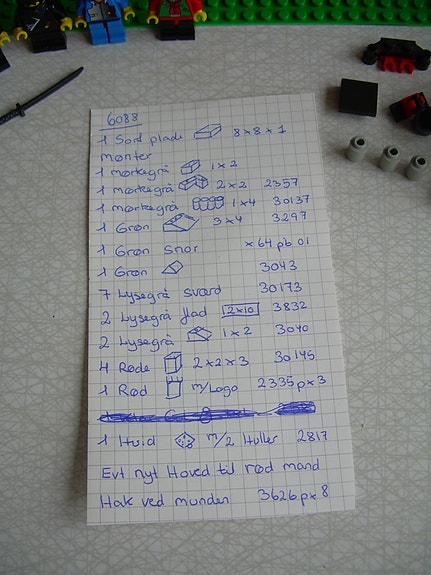 6088
1 Sort plade 8x8x1
mønter
1 mørkegrå 1x2
1 mørkegrå 2x2 2357
1 mørkegrå 1x4 30137
1 Grøn 3x4 3297
1 Grøn Snor x64pb01
1 Grøn 3043
7 Lysegrå sværd 30173
2 Lysegrå flad 2x10 3832
2 Lysegrå 1x2 3040
4 Røde 2x2x3 30145
1 Rød m/Logo 2335px3
1 Hvid m/2 Huller 2817
Evt nyt Hoved til rød mand
Hak ved munden 3626px8